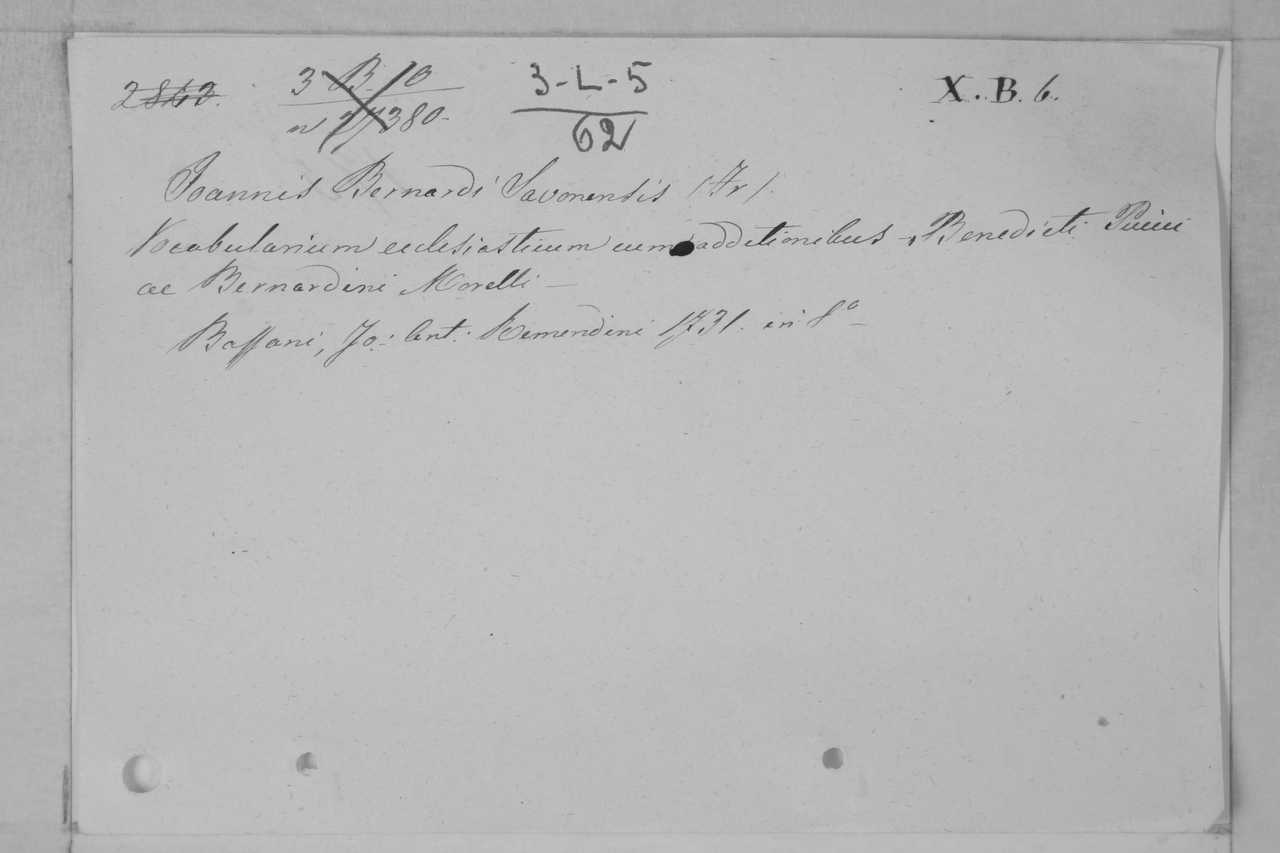 2863. 3 B. 10 3-L-5 X. B. 6.
n 27380- 62
Joannis Bernardi Savonensis (Fr)
Vocabularium ecclesiasticum cum additionibus - Benedicti Puiui
ac Bernardini Morelli -
Bassani, Jo: Ant: Remondini 1731. in 8º -